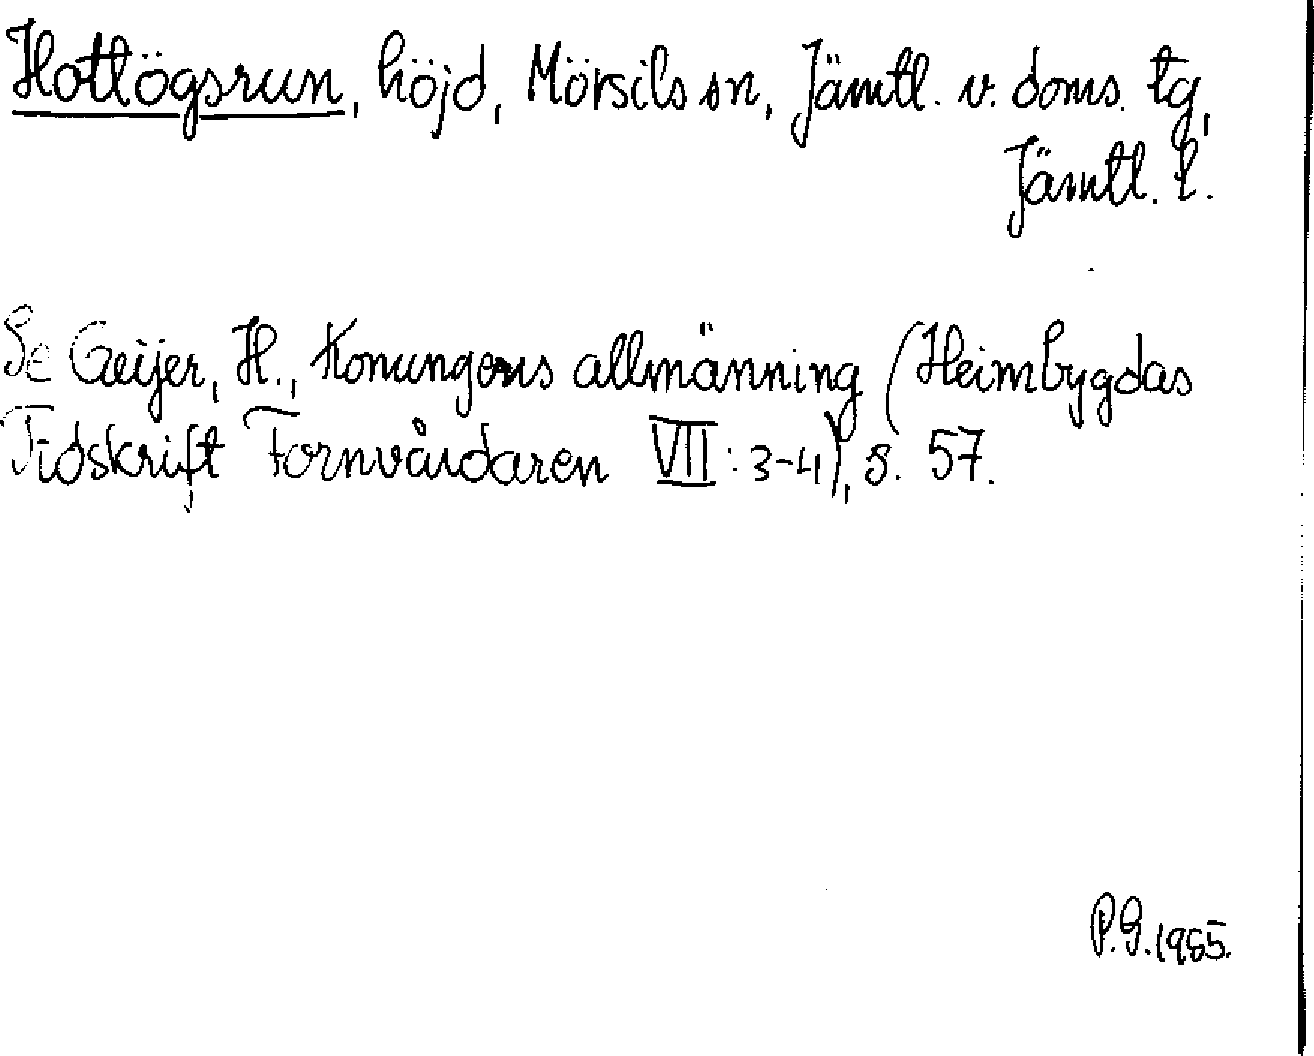 Hotlögsrun, höjd, Mörsils sn, Jämtl. v. doms. tg,
Jämtl. l.
Se Geijer, H., Konungens allmänning (Heimbygdas
Tidskrift Fornvårdaren VII: 3-4), s. 57.
P.G. 1985.